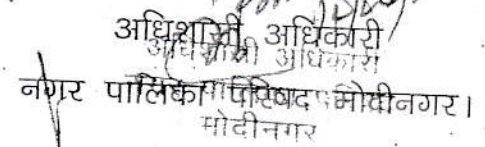 अधिशासी अधिकारी
अधिशासी अधिकारी
नगर पालिका परिषद मोदीनगर।
मोदीनगर